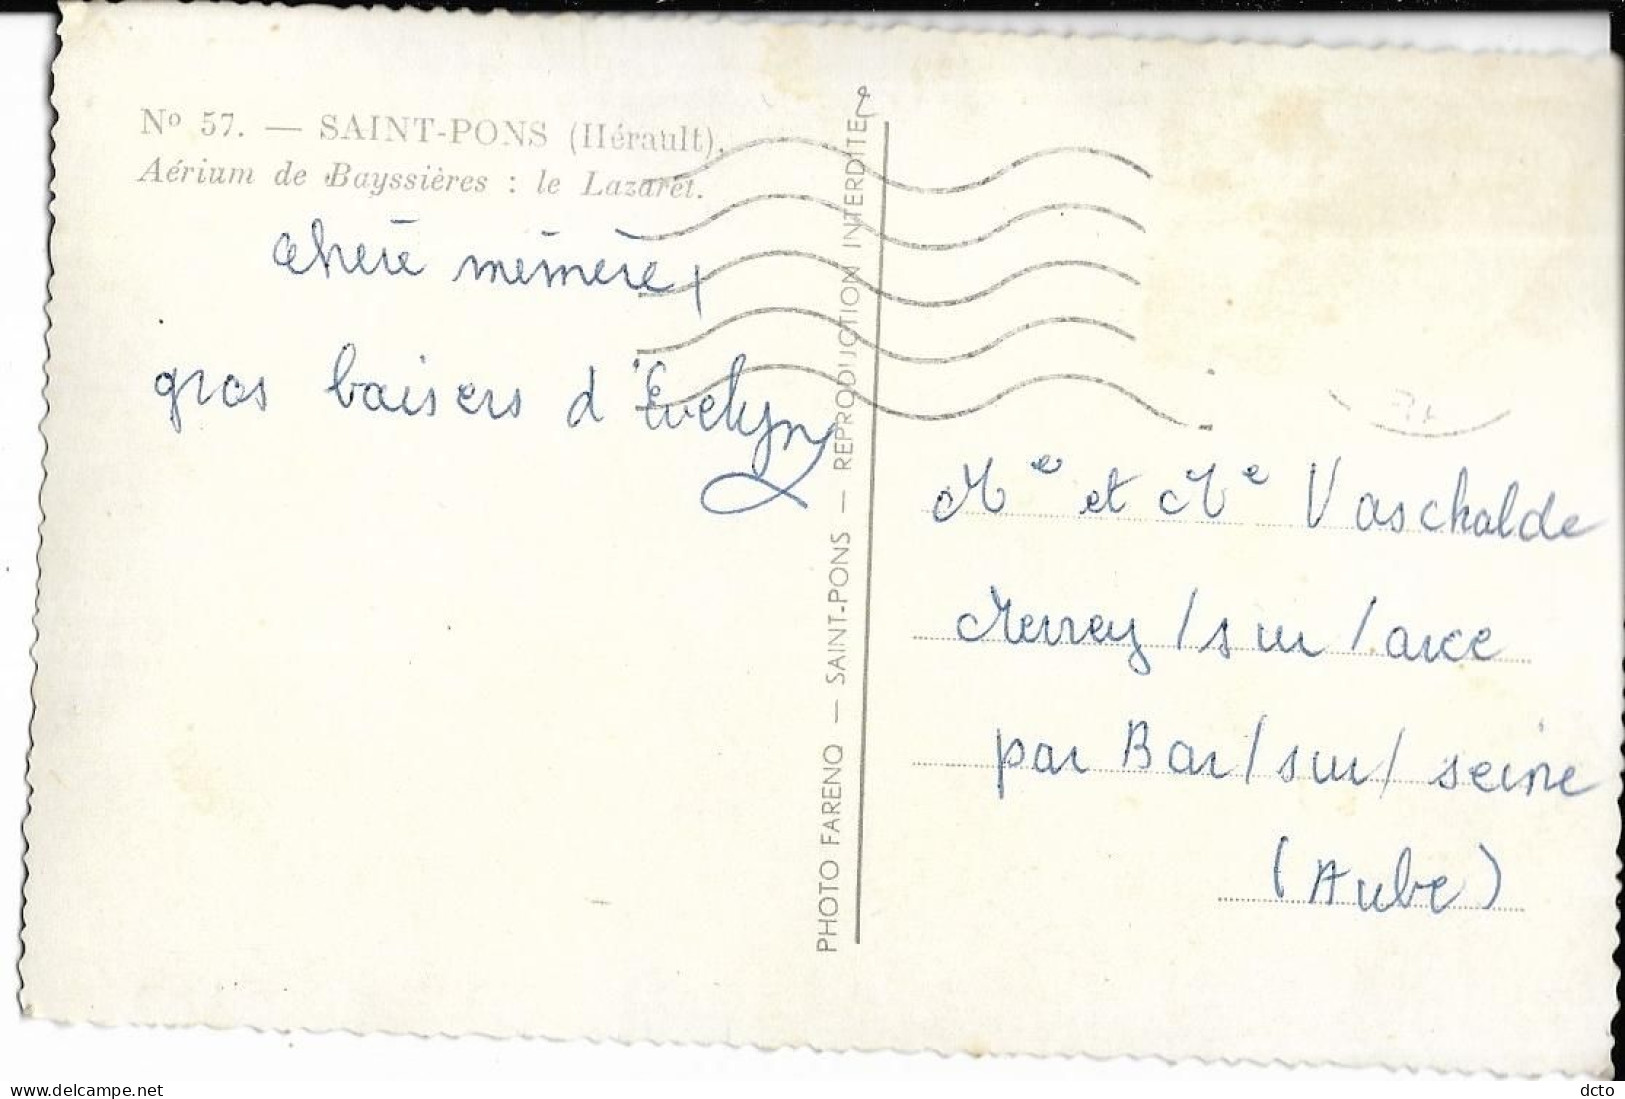 No 57. — SAINT-PONS (Hérault).
Aérium de Bayssières : le Lazaret.
chère mémère,
gros baisers d'Evelyn
PHOTO FARENQ — SAINT-PONS — REPRODUCTION INTERDITE
Me et Me Vaschalde
Merrey / sur / arce
par Bar / sur / seine
(Aube)
www.delcampe.net
dcto